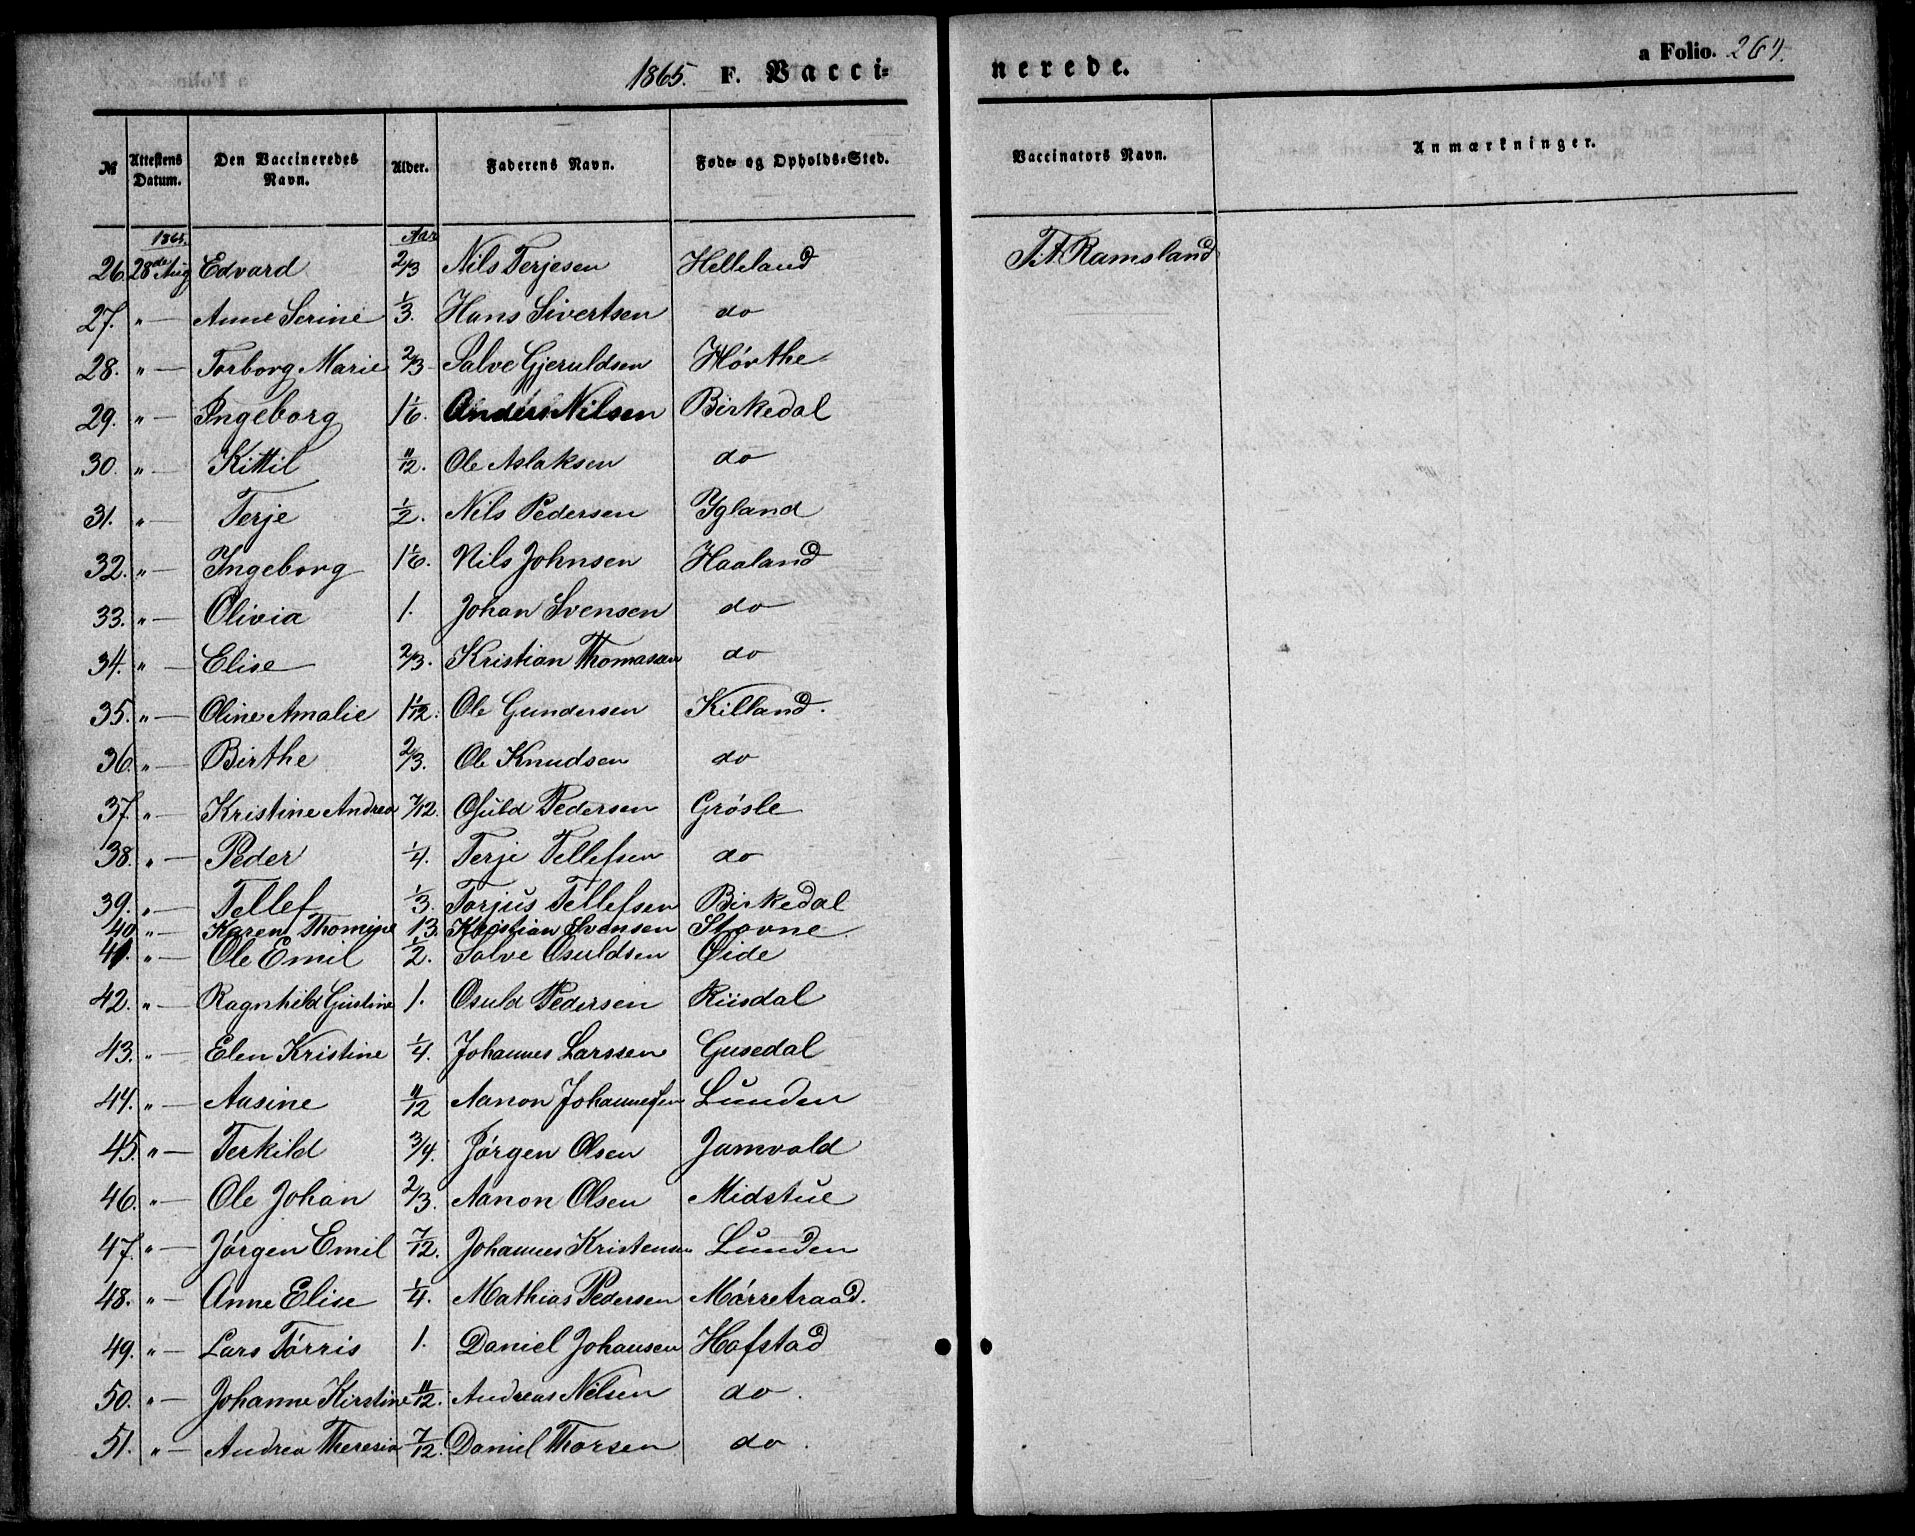 1865. F. Vaccinerede. a Folio. 264.
№ | Attestens Datum. | Den Vaccineredes Navn. | Alder. | Faderens Navn. | Føde- og Opholds-Sted. | Vaccinators Navn. | Anmærkninger.
1865. Aar
26. 28de Aug Edvard 2/3 Nils Terjesen Helleland T. A. Ramsland
27. " — Anne Serine 1/3. Hans Sivertsen do
28. " — Torborg Marie 2/3 Salve Gjeruldsen Hørthe
29. " — Ingeborg 1 1/6. Anders Nilsen Birkedal
30. " — Kittil 11/12. Ole Aslaksen do
31. " — Terje 1/2. Nils Pedersen Ygland
32. " — Ingeborg 1 1/6. Nils Johnsen Haaland
33. " — Olivia 1. Johan Svensen do
34. " — Elise 2/3. Kristian Thomassen do
35. " — Oline Amalie 1 1/12. Ole Gundersen Killand.
36. " — Birthe 2/3. Ole Knudsen do
37. " — Kristine Andrea 7/12. Osuld Pedersen Grøsle
38. " — Peder 1/4. Terje Tellefsen do
39. " — Tellef 1/3. Torjus Tellefsen Birkedal
40. " — Karen Thomine 13. Kristian Svensen Stovne
41. " — Ole Emil 1/2. Salve Osuldsen Øide
42. " — Ragnhild Gustine 1. Osuld Pedersen Riisdal
43. " — Elen Kristine 1/4. Johannes Larssen Gusedal
44. " — Aasine 11/12 Aanon Johannessen Lunden
45. " — Terkild 3/4. Jørgen Olsen Jamvold
46. " — Ole Johan 2/3. Aanon Olsen Midstue
47. " — Jørgen Emil 7/12. Johannes Kristensen Lunden
48. " — Anne Elise 1/4. Mathias Pedersen Mørretraad.
49. " — Lars Tørris 1. Daniel Johansen Hofstad
50. " — Johanne Kirstine 11/12. Andreas Nilsen do.
51. " — Andrea Theresia 7/12. Daniel Thorsen do.